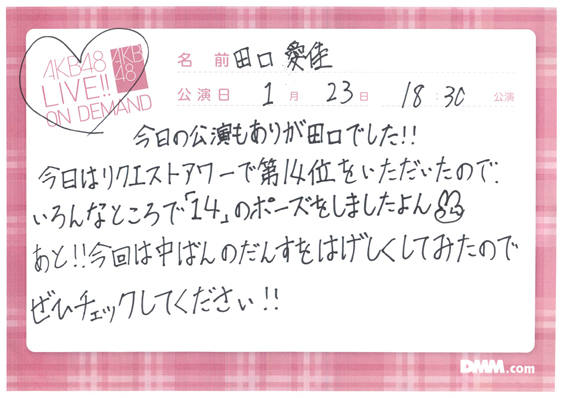 AKB48
LIVE!!
ON DEMAND
AKB
48
名 前 田口 愛佳
公演日 1月 23日 18:30 公演
今日の公演もありが田口でした!!
今日はリクエストアワーで第14位をいただいたので、
いろんなところで「14」のポーズをしましたよん
あと!!今回は中ばんのだんすをはげしくしてみたので
ぜひチェックしてください!!
DMM.com